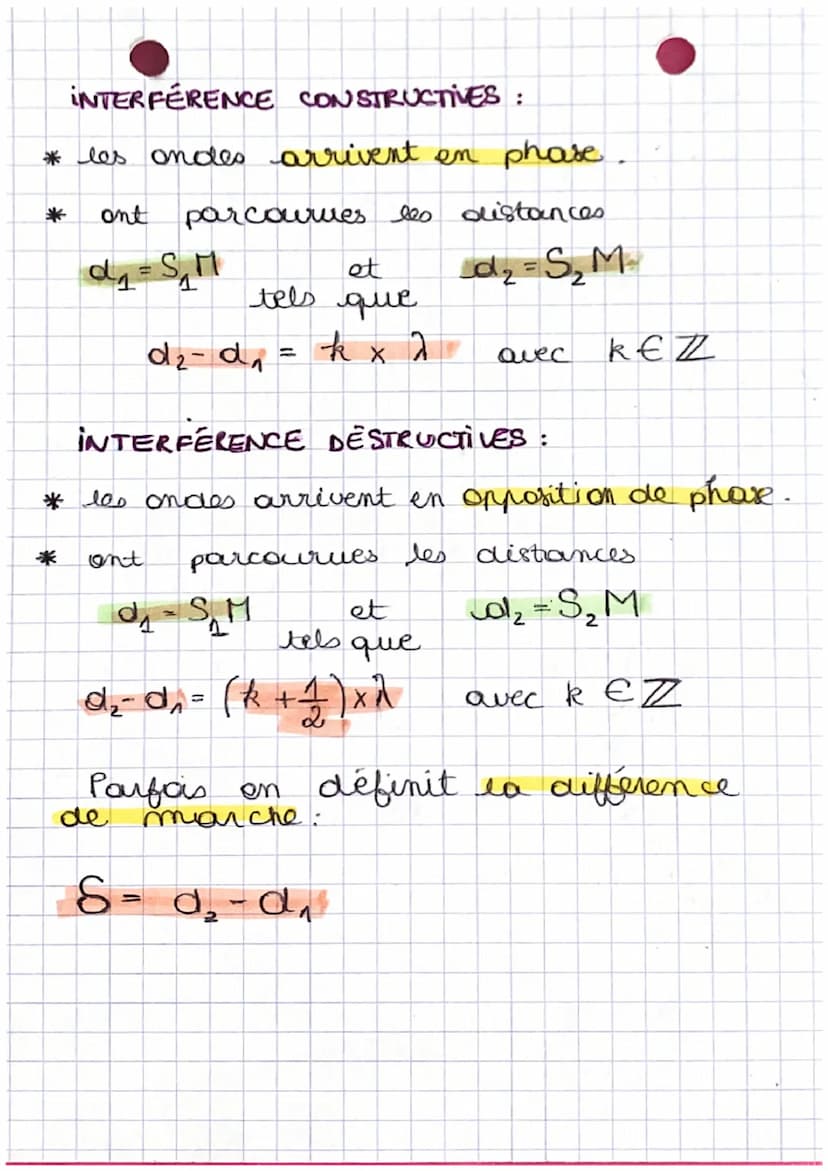 INTERFÉRENCE CONSTRUCTIVES :
* les ondes arrivent en phase.
* ont parcourues les distances
d₁ = S₁M et d₂ = S₂M
tels que
d₂ - d₁ = k x λ avec k ∈ ℤ
INTERFÉRENCE DÉSTRUCTIVES :
* les ondes arrivent en opposition de phase.
* ont parcourues les distances
d₁ = S₁M et d₂ = S₂M
tels que
d₂ - d₁ = (k + 1/2) x λ avec k ∈ ℤ
Parfois on définit la différence
de marche :
δ = d₂ - d₁